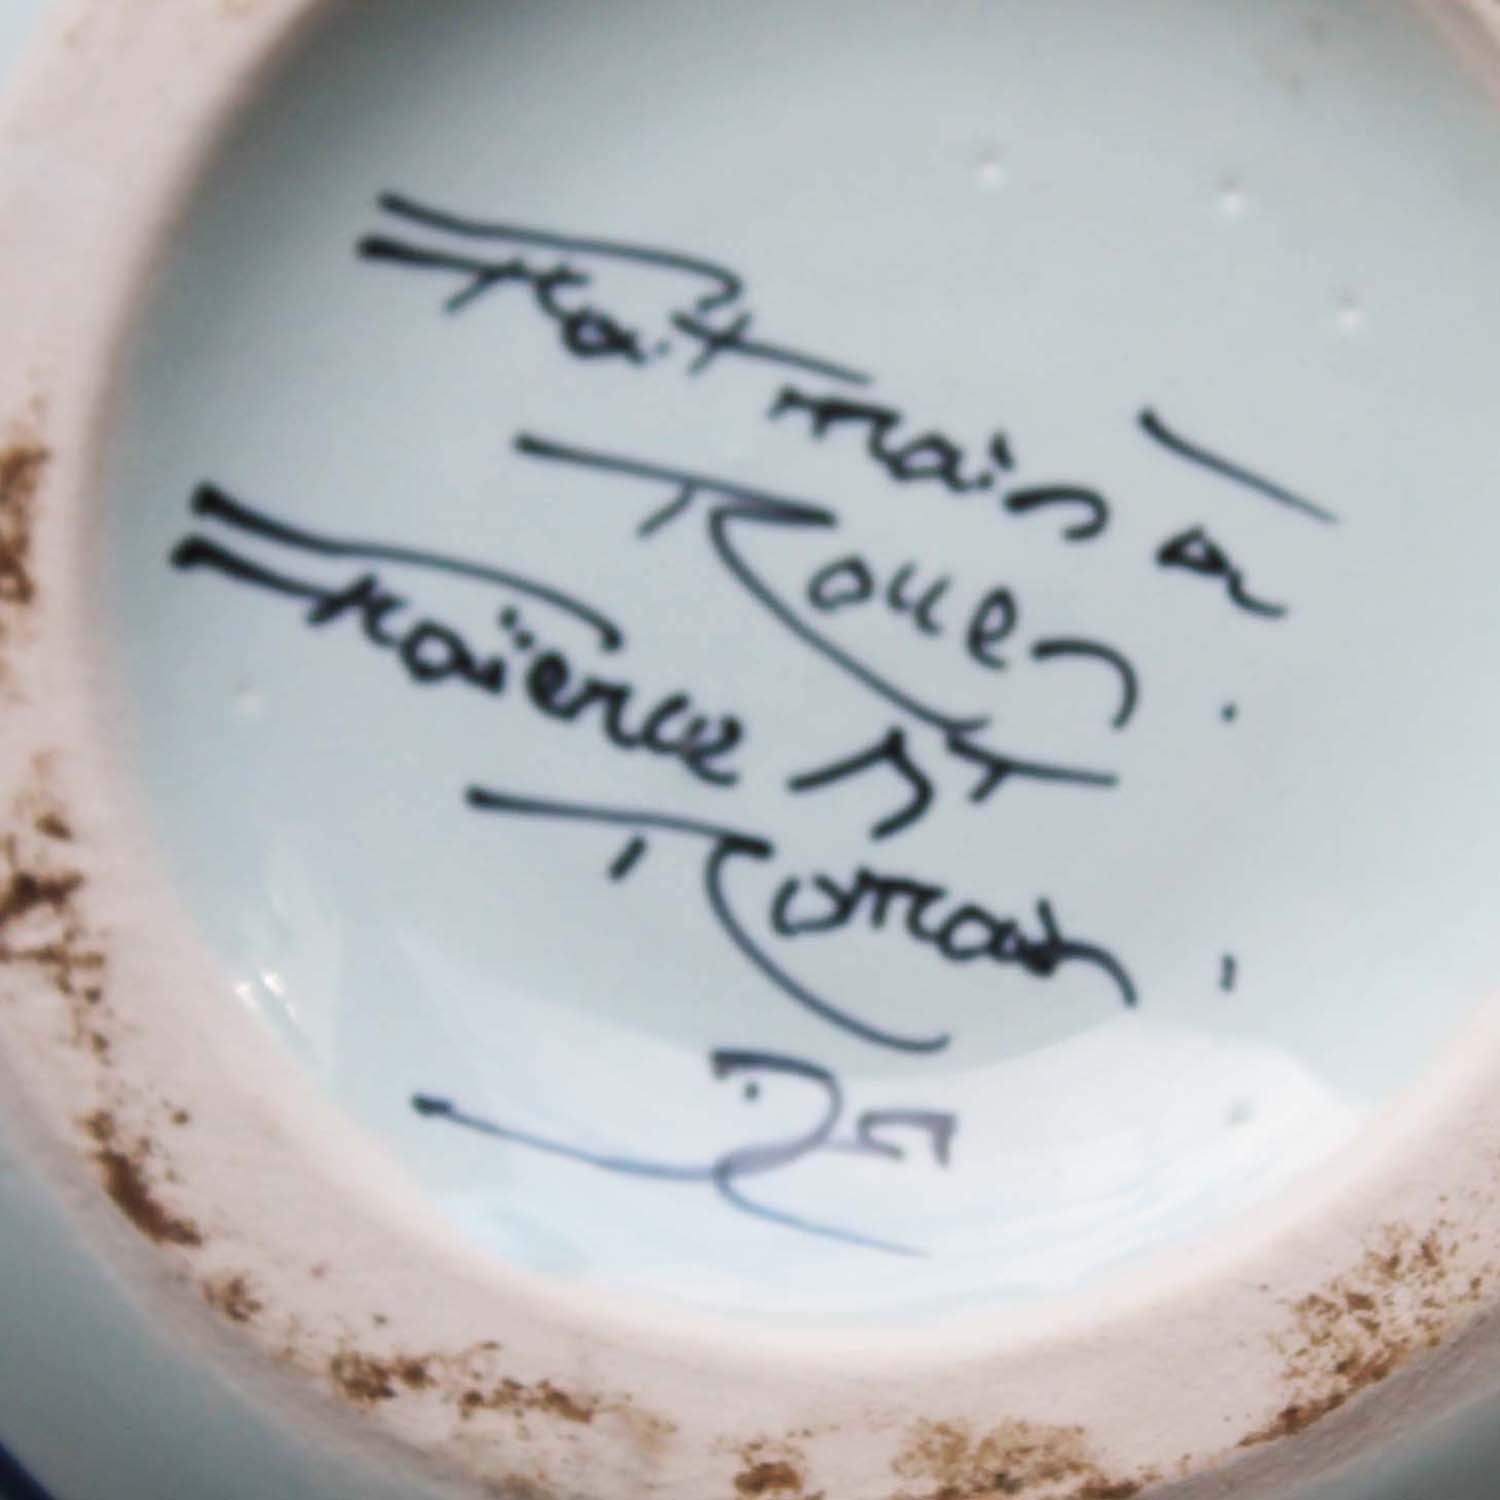 Fait main à
Rouen.
Faïence St
Romain.